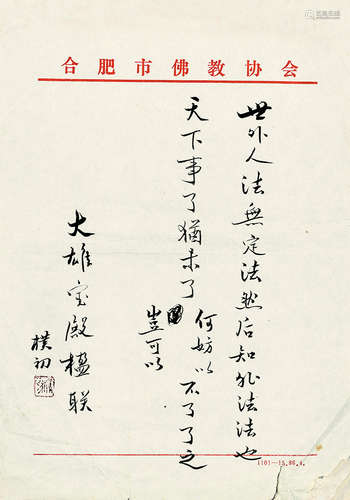 合肥市佛教协会
世外人法無定法然后知非法法也
天下事了猶未了何妨以不了了之
豈可以
大雄宝殿楹联
樸初
(10)-15.86.4.